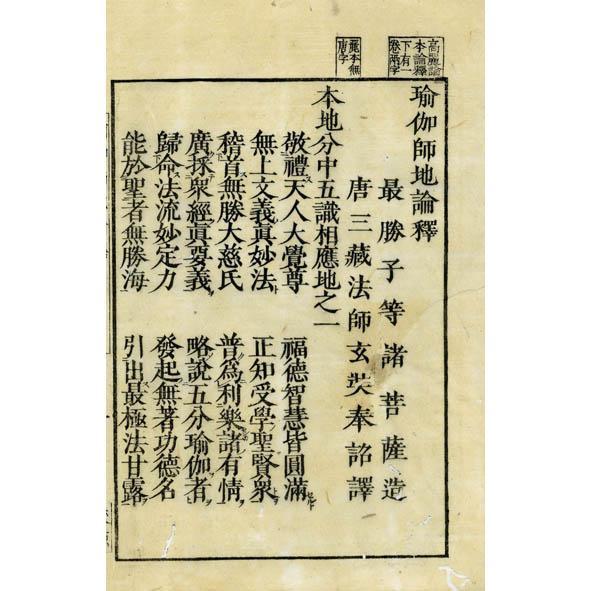 本論釋
下有一
卷兩字
麗本無
唐字
瑜伽師地論釋
最勝子等諸菩薩造
唐三藏法師玄奘奉詔譯
本地分中五識相應地之一
敬禮天人大覺尊 福德智慧皆圓滿
無上文義眞妙法 正知受學聖賢衆
稽首無勝大慈氏 普爲利樂諸有情
廣採衆經眞要義 略說五分瑜伽者
歸命法流妙定力 發起無著功德名
能於聖者無勝海 引出最極法甘露